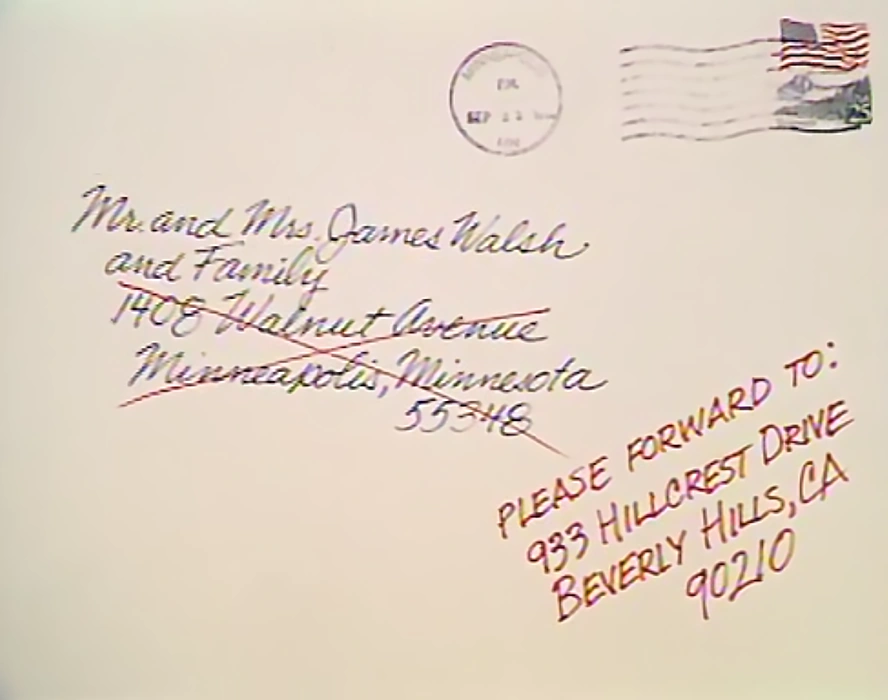 SEP
25
Mr. and Mrs. James Walsh
and Family
1408 Walnut Avenue
Minneapolis, Minnesota
55348
PLEASE FORWARD TO:
933 HILLCREST DRIVE
BEVERLY HILLS, CA
90210